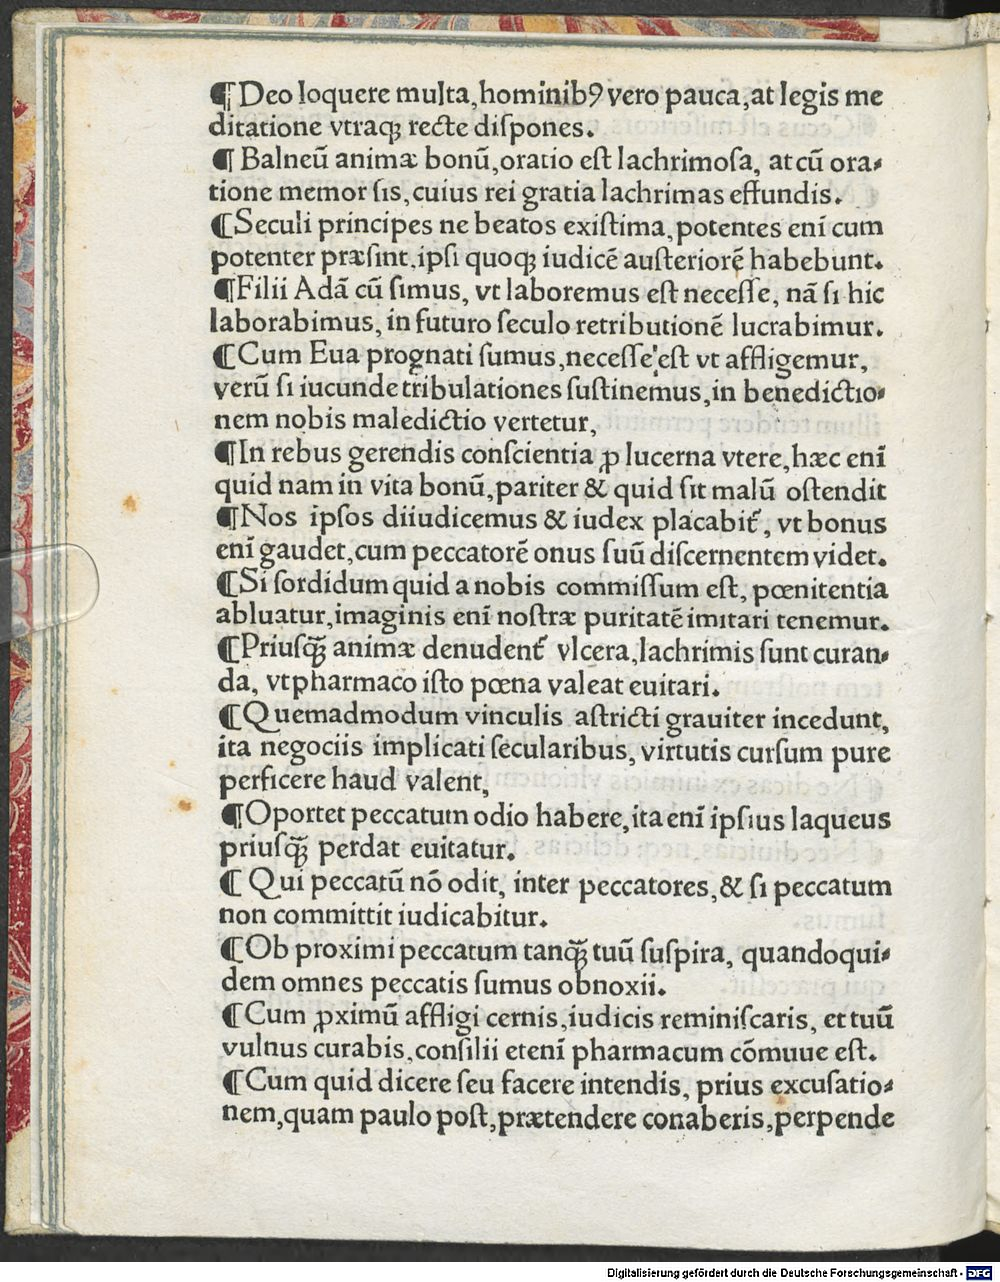 ¶Deo loquere multa,hominibꝰ vero pauca,at legis me
ditatione vtraqꝫ recte diſpones.
¶ Balneū animæ bonū,oratio eſt lachrimoſa, at cū ora⸗
tione memor ſis,cuius rei gratia lachrimas effundis.
¶Seculi principes ne beatos exiſtima,potentes enī cum
potenter præſint,ipſi quoqꝫ iudicē auſteriorē habebunt.
¶Filii Adā cū ſimus, vt laboremus eſt neceſſe, nā ſi hic
laborabimus, in futuro ſeculo retributionē lucrabimur.
¶Cum Eua prognati ſumus,neceſſe eſt vt affligemur,
verū ſi iucunde tribulationes ſuſtinemus,in benedictio⸗
nem nobis maledictio vertetur,
¶In rebus gerendis conſcientia ꝓ lucerna vtere,hæc enī
quid nam in vita bonū,pariter & quid ſit malū oſtendit
¶Nos ipſos diiudicemus & iudex placabit᷑, vt bonus
enī gaudet,cum peccatorē onus ſuū diſcernentem videt.
¶Si ſordidum quid a nobis commiſſum eſt, pœnitentia
abluatur,imaginis enī noſtræ puritatē imitari tenemur.
¶Priuſqꝫ̄ animæ denudent᷑ vlcera,lachrimis ſunt curan⸗
da, vt pharmaco iſto pœna valeat euitari.
¶Quemadmodum vinculis aſtricti grauiter incedunt,
ita negociis implicati ſecularibus, virtutis curſum pure
perficere haud valent,
¶Oportet peccatum odio habere,ita enī ipſius laqueus
priuſqꝫ̄ perdat euitatur.
¶ Qui peccatū nō odit, inter peccatores,& ſi peccatum
non committit iudicabitur.
¶Ob proximi peccatum tanqꝫ̄ tuū ſuſpira, quandoqui⸗
dem omnes peccatis ſumus obnoxii.
¶Cum ꝓximū affligi cernis,iudicis reminiſcaris, et tuū
vulnus curabis,conſilii etenī pharmacum cōmuue eſt.
¶Cum quid dicere ſeu facere intendis, prius excuſatio⸗
nem,quam paulo poſt,prætendere conaberis,perpende
Digitalisierung gefördert durch die Deutsche Forschungsgemeinschaft - DFG